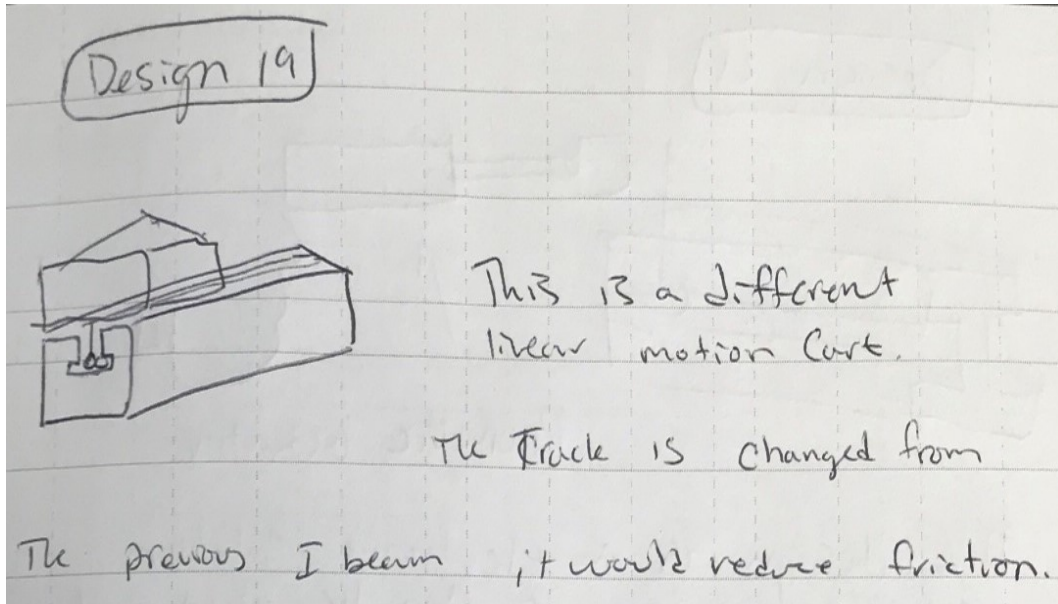 Design 19
This is a different
linear motion Cart.
The Track is changed from
The previous I beam , it would reduce friction.